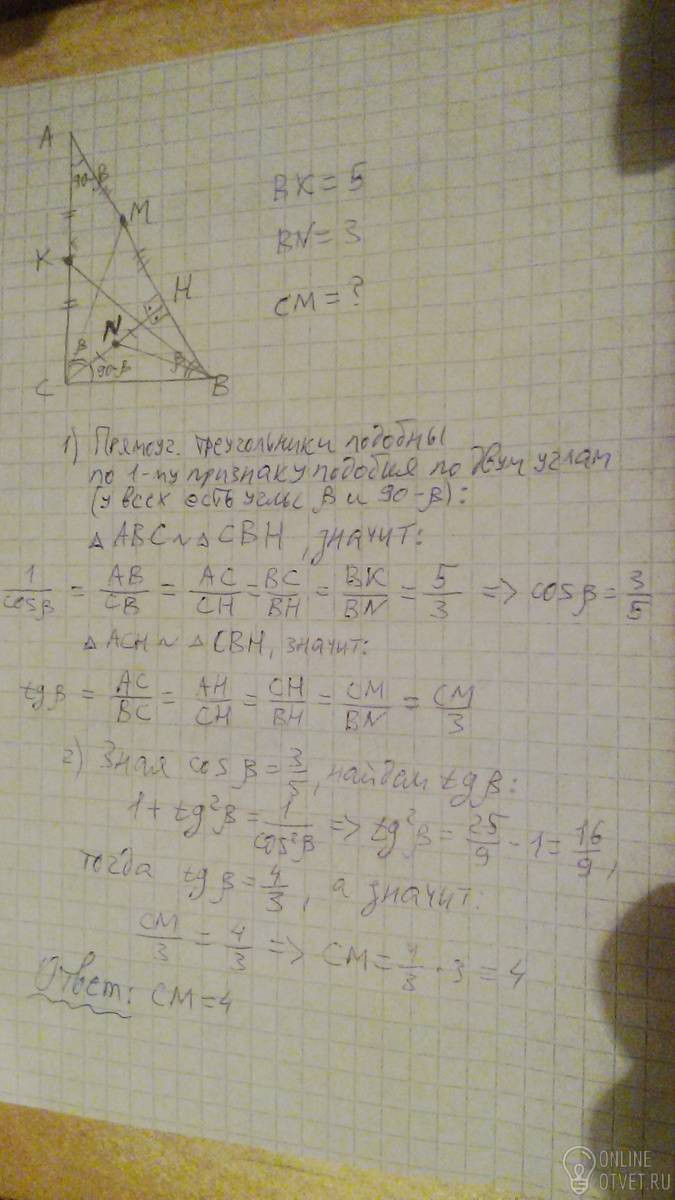 A
90-β
M
K
H
N
β
90-β
β
C
B
BK = 5
BN = 3
CM = ?
1) Прямоуг. треугольники подобны
по 1-му признаку подобия по двум углам
(у всех есть углы β и 90-β):
△ABC ~ △CBH, значит:
1/cosβ = AB/CB = AC/CH = BC/BH = BK/BN = 5/3 => cosβ = 3/5
△ACH ~ △CBH, значит:
tgβ = AC/BC = AH/CH = CH/BH = CM/BN = CM/3
2) Зная cosβ = 3/5, найдем tgβ:
1 + tg²β = 1/cos²β => tg²β = 25/9 - 1 = 16/9,
тогда tgβ = 4/3, а значит:
CM/3 = 4/3 => CM = 4/3 · 3 = 4
Ответ: CM = 4
ONLINE
OTVET.RU